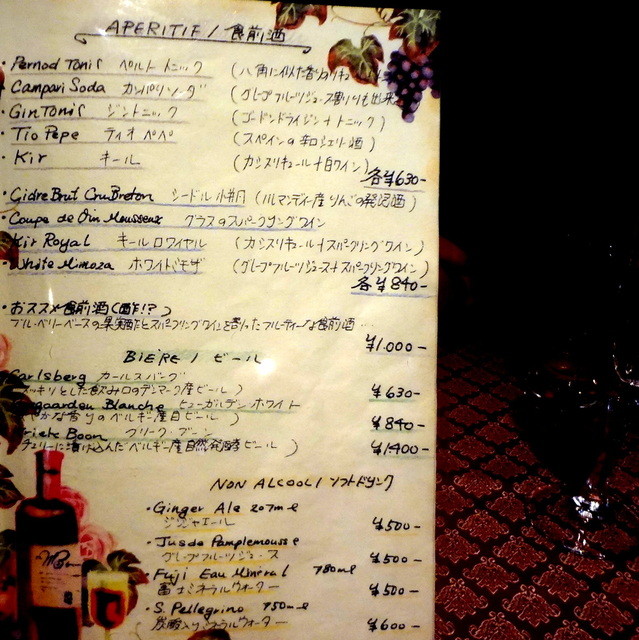 APERITIF / 食前酒
・Pernod Tonic ペルノトニック (八角に似た香りのリキュ
・Campari Soda カンパリソーダ (グレープフルーツジュース割りも出来
・Gin Tonic ジントニック (ゴードンドライジン+トニック)
・Tio Pepe ティオペペ (スペインの辛口シェリー酒)
・Kir キール (カシスリキュール+白ワイン)
各¥630-
・Cidre Brut Cru Breton シードル (ノルマンディー産りんごの発泡酒)
・Coupe de Vin Mousseux グラスのスパークリングワイン
Kir Royal キールロワイヤル (カシスリキュール+スパークリングワイン)
White Mimoza ホワイトミモザ (グレープフルーツジュース+スパークリングワイン)
各¥840-
・おススメ食前酒(酢!?)
ブルーベリーベースの果実酢とスパークリングワインを使ったフルーティーな食前酒…
¥1,000-
BIÈRE / ビール
Carlsberg カールスバーグ
スッキリとした飲み口のデンマーク産ビール) ¥630-
gaarden Blanche ヒューガルデンホワイト
かな香りのベルギー産白ビール) ¥840-
riek Boon クリーク・ブーン
チェリーに漬け込んだベルギー産自然発酵ビール) ¥1,400-
NON ALCOOL / ソフトドリンク
・Ginger Ale 207ml
ジンジャエール ¥500-
・Jus de Pamplemousse
グレープフルーツジュース ¥500-
Fuji Eau Minéral 780ml
富士ミネラルウォーター ¥500-
・S. Pellegrino 750ml
炭酸入りミネラルウォーター ¥600-